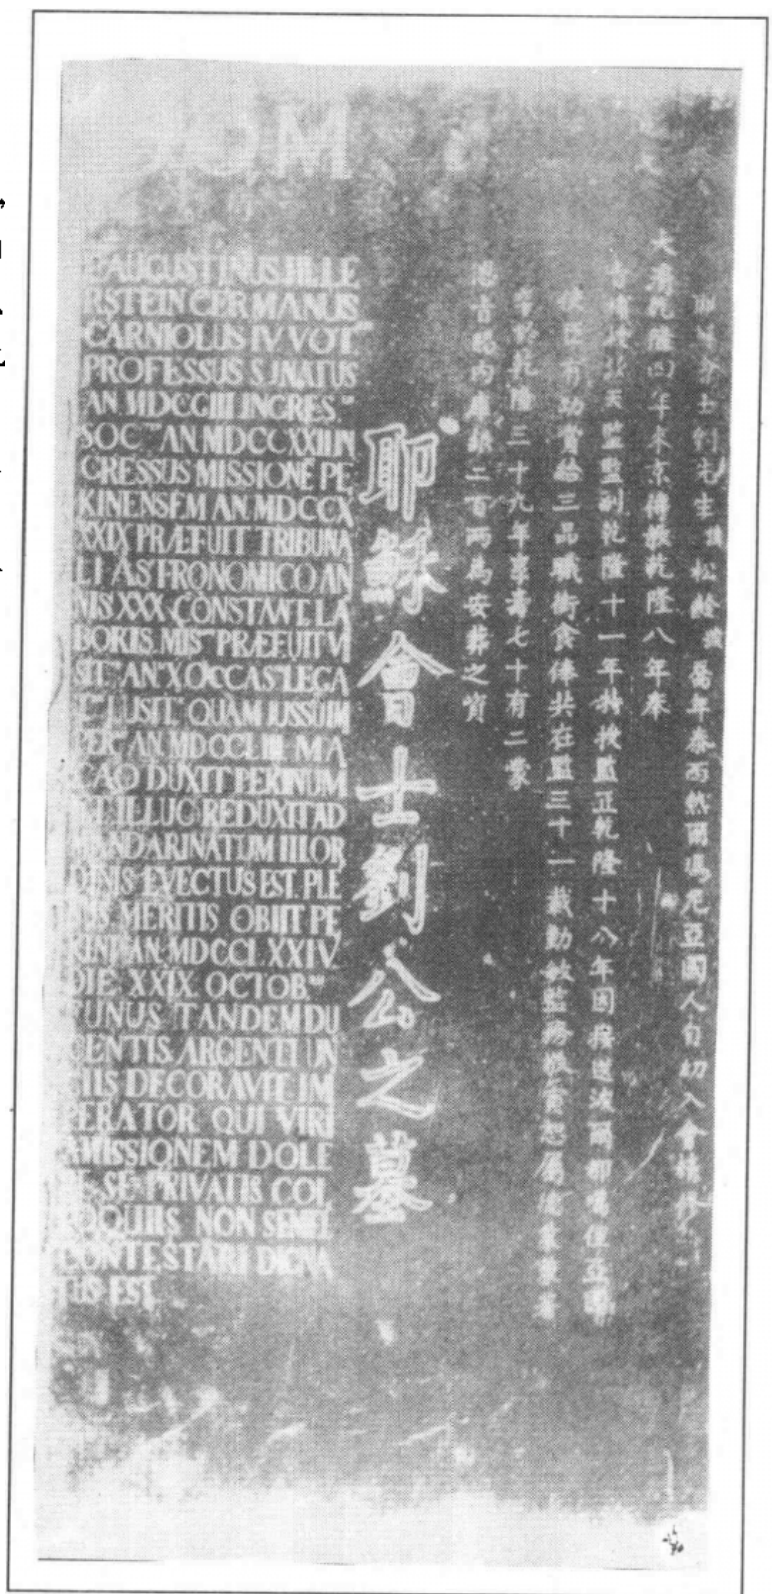 D O M
P AUGUSTINUS HALLE
RSTEIN GERMANUS
CARNIOLUS IV VOT
PROFESSUS S.J NATUS
AN MDCCIII INGRES.
SOC AN MDCCXXI IN
GRESSUS MISSIONĒ PE
KINENSEM AN MDCCX
XXIX PRÆFUIT TRIBUNA
LI ASTRONOMICO AN
NIS XXX CONSTANT. LA
BORIS MIS PRÆFUIT VI
SIT AN X OCCAS LEGA
T LUSIT QUAM JUSSU IM
PER AN MDCCLIII MA
CAO DUXIT PEKINUM
ET ILLUC REDUXIT AD
MANDARINATUM III OR
DINIS EVECTUS EST. PLE
NUS MERITIS OBIIT PE
KINI AN MDCCLXXIV.
DIE XXIX OCTOB.
FUNUS TANDEM DU
CENTIS ARGENTI UN
CIIS DECORAVIT IM
PERATOR QUI VIRI
AMISSIONEM DOLE
SE PRIVATIS COL
LOQUIIS NON SEMEL
CONTESTARI DIGNA
TUS EST.
耶穌會士劉公之墓
耶穌會士劉先生諱松齡號喬年泰西熱爾瑪尼亞國人自幼入會精修
大清乾隆四年來京傳教乾隆八年奉
旨補授欽天監監副乾隆十一年特授監正乾隆十八年因接送波爾都噶俚亞國
使臣有功賞給三品職銜食俸共在監三十一載勤敏監務
卒於乾隆三十九年享壽七十有二蒙
恩旨賜內庫銀二百兩為安葬之資